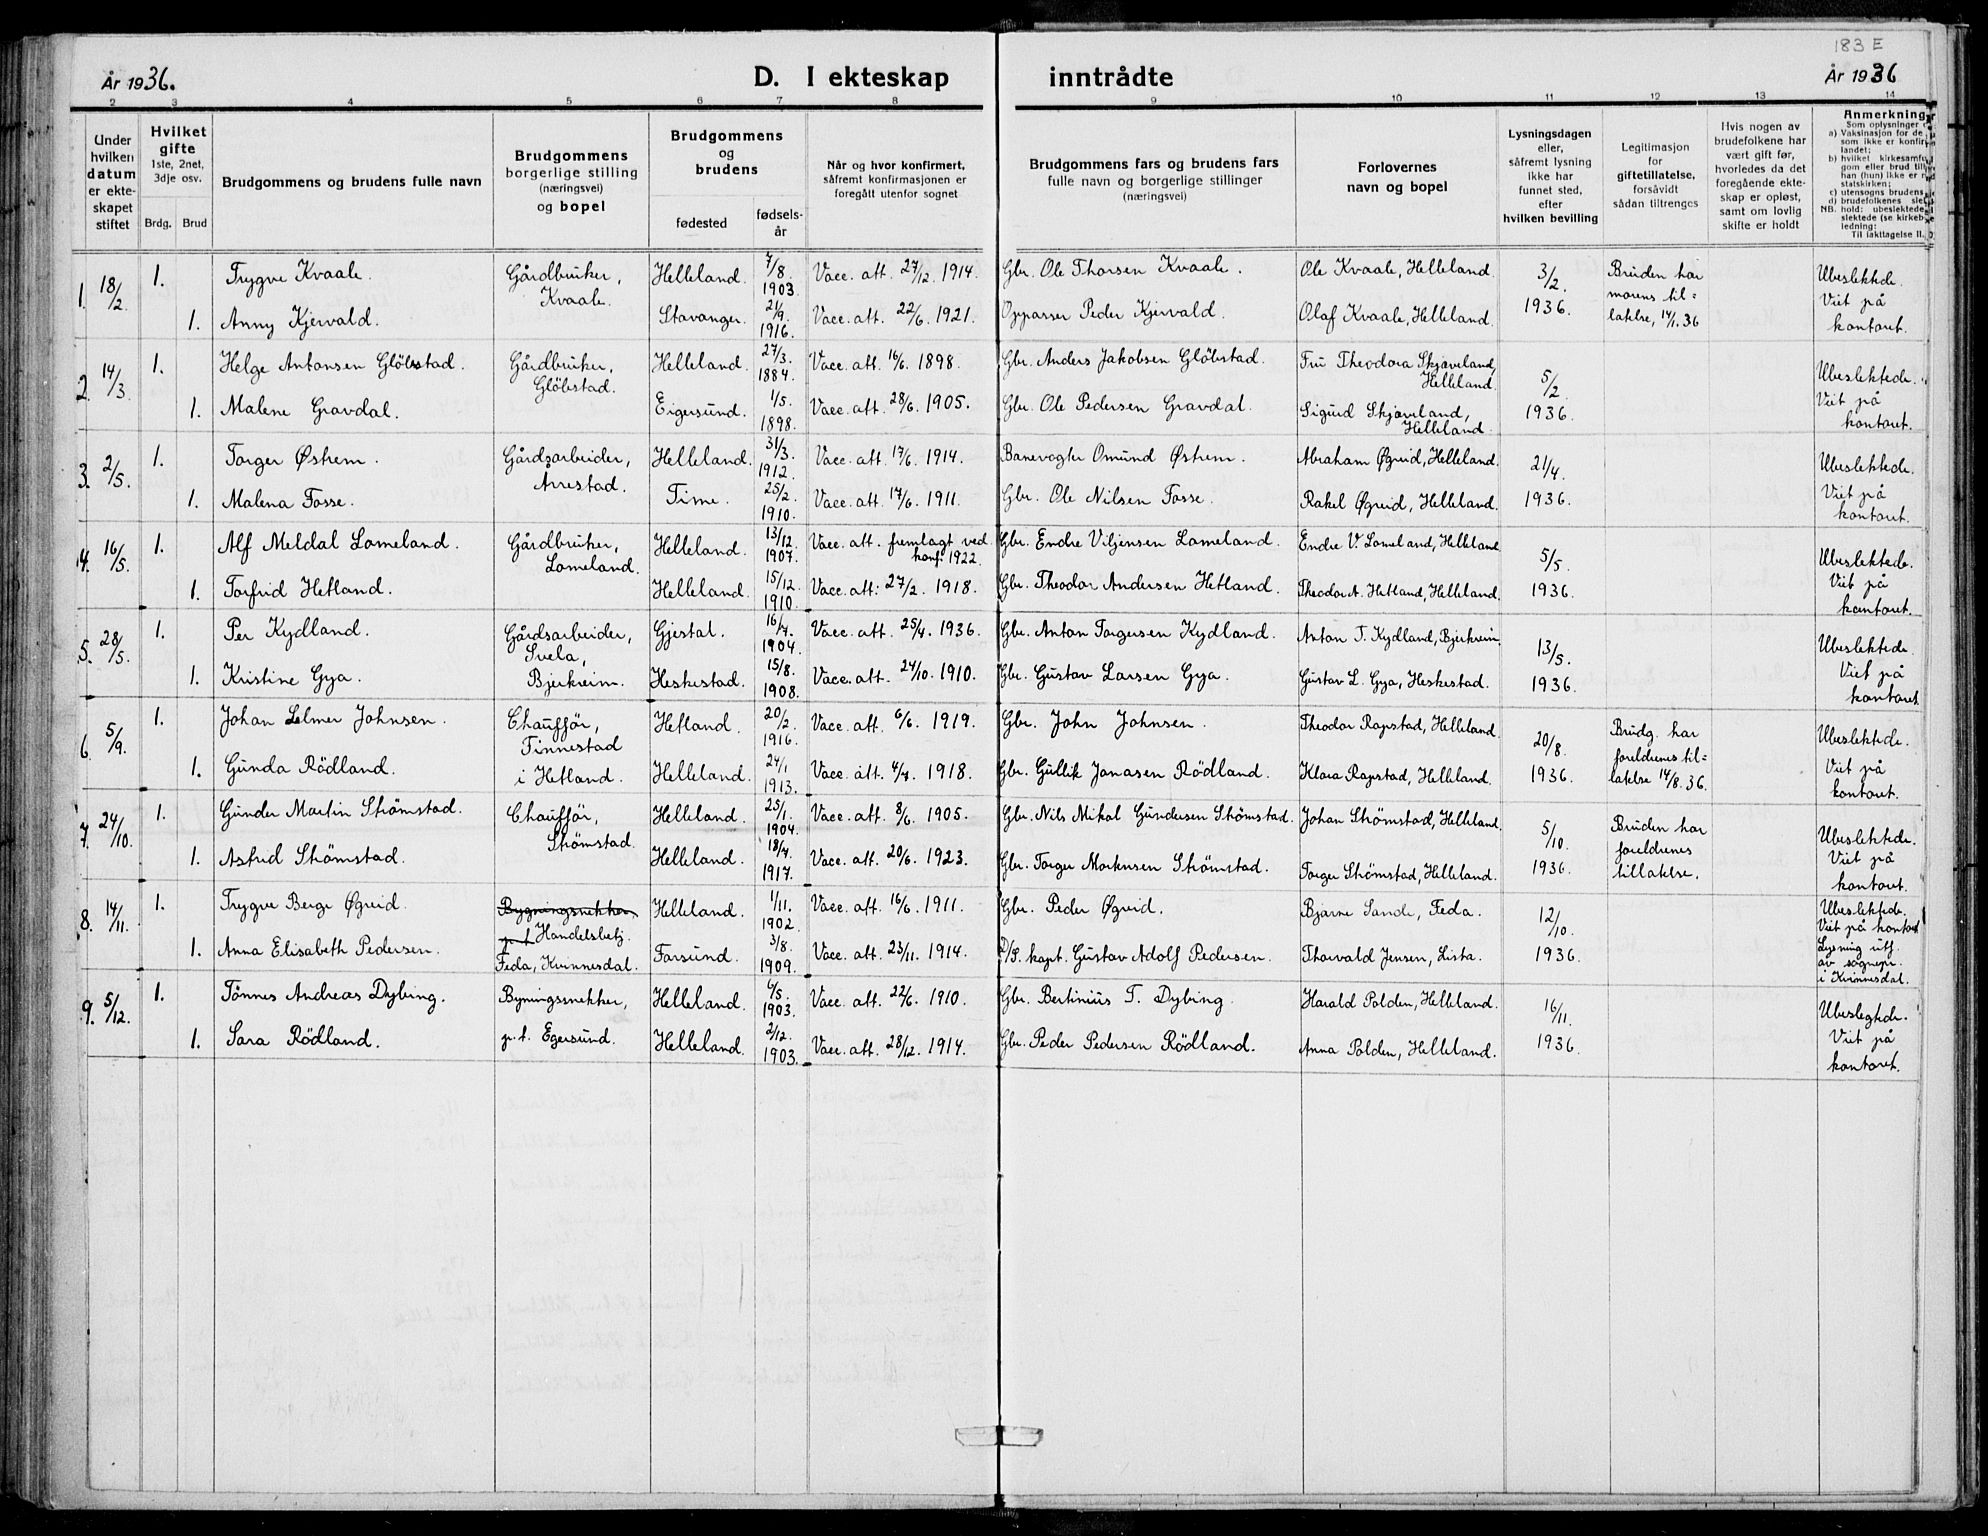 183 E
År 1936.
D. I ekteskap inntrådte
År 1936
2 3 4 5 6 7 8 9 10 11 12 13 14
Under hvilken datum er ekteskapet stiftet
Hvilket gifte
1ste, 2net, 3dje osv.
Brdg. Brud
Brudgommens og brudens fulle navn
Brudgommens borgerlige stilling (næringsvei) og bopel
Brudgommens og brudens
fødested
fødselsår
Når og hvor konfirmert, såfremt konfirmasjonen er foregått utenfor sognet
Brudgommens fars og brudens fars fulle navn og borgerlige stillinger (næringsvei)
Forlovernes navn og bopel
Lysningsdagen eller, såfremt lysning ikke har funnet sted, efter hvilken bevilling
Legitimasjon for giftetillatelse, forsåvidt sådan tiltrenges
Hvis nogen av brudefolkene har vært gift før, hvorledes da det foregående ekteskap er opløst, samt om lovlig skifte er holdt
Anmerkning
1. 18/2 1. Trygve Kvaale. Gårdbruker, Kvaale. Helleland. 7/8. 1903. Vacc. att. 27/12. 1914. Gbr. Ole Thorsen Kvaale. Ole Kvaale, Helleland. 3/2. 1936. Bruden har morens tillatelse, 14/1.36 Ubeslektede. Viet på kontoret.
1. Anny Kjervald. Stavanger. 21/9. 1916. Vacc. att. 22/6. 1921. Oppasser Peder Kjervald. Olaf Kvaale, Helleland.
2. 14/3. 1. Helge Antonsen Glöbstad. Gårdbruker, Glöbstad. Helleland. 27/3. 1884. Vacc. att. 16/6. 1898. Gbr. Anders Jakobsen Glöbstad. Fru Theodora Skjæveland, Helleland. 5/2. 1936. Ubeslektede. Viet på kontoret.
1. Malene Gravdal. Eigersund. 1/5. 1898. Vacc. att. 28/6. 1905. Gbr. Ole Pedersen Gravdal. Sigurd Skjæveland, Helleland.
3. 2/5. 1. Torger Østrem. Gårdsarbeider, Årrestad. Helleland. 31/3. 1912. Vacc. att. 17/6. 1914. Banevogter Omund Østrem. Abraham Øgreid, Helleland. 21/4. 1936. Ubeslektede. Viet på kontoret.
1. Malena Fosse. Time. 25/2. 1910. Vacc. att. 17/6. 1911. Gbr. Ole Nilsen Fosse. Rakel Øgreid, Helleland.
4. 16/5. 1. Alf Meldal Lomeland. Gårdbruker, Lomeland. Helleland. 13/12. 1907. Vacc. att. fremlagt ved konf. 1922. Gbr. Endre Viljensen Lomeland. Endre V. Lomeland, Helleland. 5/5. 1936. Ubeslektede. Viet på kontoret.
1. Torfrid Hetland. Helleland. 15/12. 1910. Vacc. att: 27/2. 1918. Gbr. Theodor Andersen Hetland. Theodor A. Hetland, Helleland.
5. 28/5. 1. Per Kydland. Gårdsarbeider, Svela, Bjerkreim. Gjestal. 16/4. 1904. Vacc. att. 25/4. 1936. Gbr. Anton Torgersen Kydland. Anton T. Kydland, Bjerkreim. 13/5. 1936. Ubeslektede. Viet på kontoret.
1. Kristine Gya. Heskestad. 15/8. 1908. Vacc. att. 24/10. 1910. Gbr. Gustav Larsen Gya. Gustav L. Gya, Heskestad.
6. 5/9. 1. Johan Selmer Johnsen. Chauffør, Finnestad i Hetland. Hetland. 20/2. 1916. Vacc. att. 6/6. 1919. Gbr. John Johnsen. Theodor Rapstad, Helleland. 20/8. 1936. Brudg. har foreldrenes tillatelse 14/8.36. Ubeslektede. Viet på kontoret.
1. Gunda Rödland. Helleland. 24/1 1913. Vacc. att. 4/7. 1918. Gbr. Gullik Jonasen Rödland. Klara Rapstad, Helleland.
7. 24/10. 1. Gunder Martin Strömstad. Chauffør, Strömstad. Helleland. 25/1. 1904. Vacc. att. 8/6. 1905. Gbr. Nils Mikal Gundersen Strömstad. Johan Strömstad, Helleland. 5/10. 1936. Bruden har foreldrenes tillatelse. Ubeslektede. Viet på kontoret.
1. Astrid Strömstad. Helleland. 18/4. 1917. Vacc. att. 20/6. 1923. Gbr. Torger Mortensen Strömstad. Torger Strömstad, Helleland.
8. 14/11. 1. Trygve Berge Øgreid. Bygningssnekker, p.t. Handelsbetj. Feda, Kvinnesdal. Helleland. 1/11. 1902. Vacc. att. 16/6. 1911. Gbr. Peder Øgreid. Bjarne Sande, Feda. 12/10. 1936. Ubeslektede. Viet på kontoret Lysning utf. av sognepr. i Kvinnesdal.
1. Anna Elisabeth Pedersen. Farsund. 3/8. 1909. Vacc. att. 23/11. 1914. D/S. kapt. Gustav Adolf Pedersen. Thorvald Jensen, Lista.
9. 5/12. 1. Tönnes Andreas Dybing. Bygningssnekker, p.t. Egersund. Helleland. 6/5. 1903. Vacc. att. 22/6. 1910. Gbr. Bertinius T. Dybing. Harald Polden, Helleland. 16/11. 1936. Ubeslegtede. Viet på kontoret.
1. Sara Rödland. Helleland. 2/12. 1903. Vacc. att. 28/12. 1914. Gbr. Peder Pedersen Rödland. Anna Polden, Helleland.